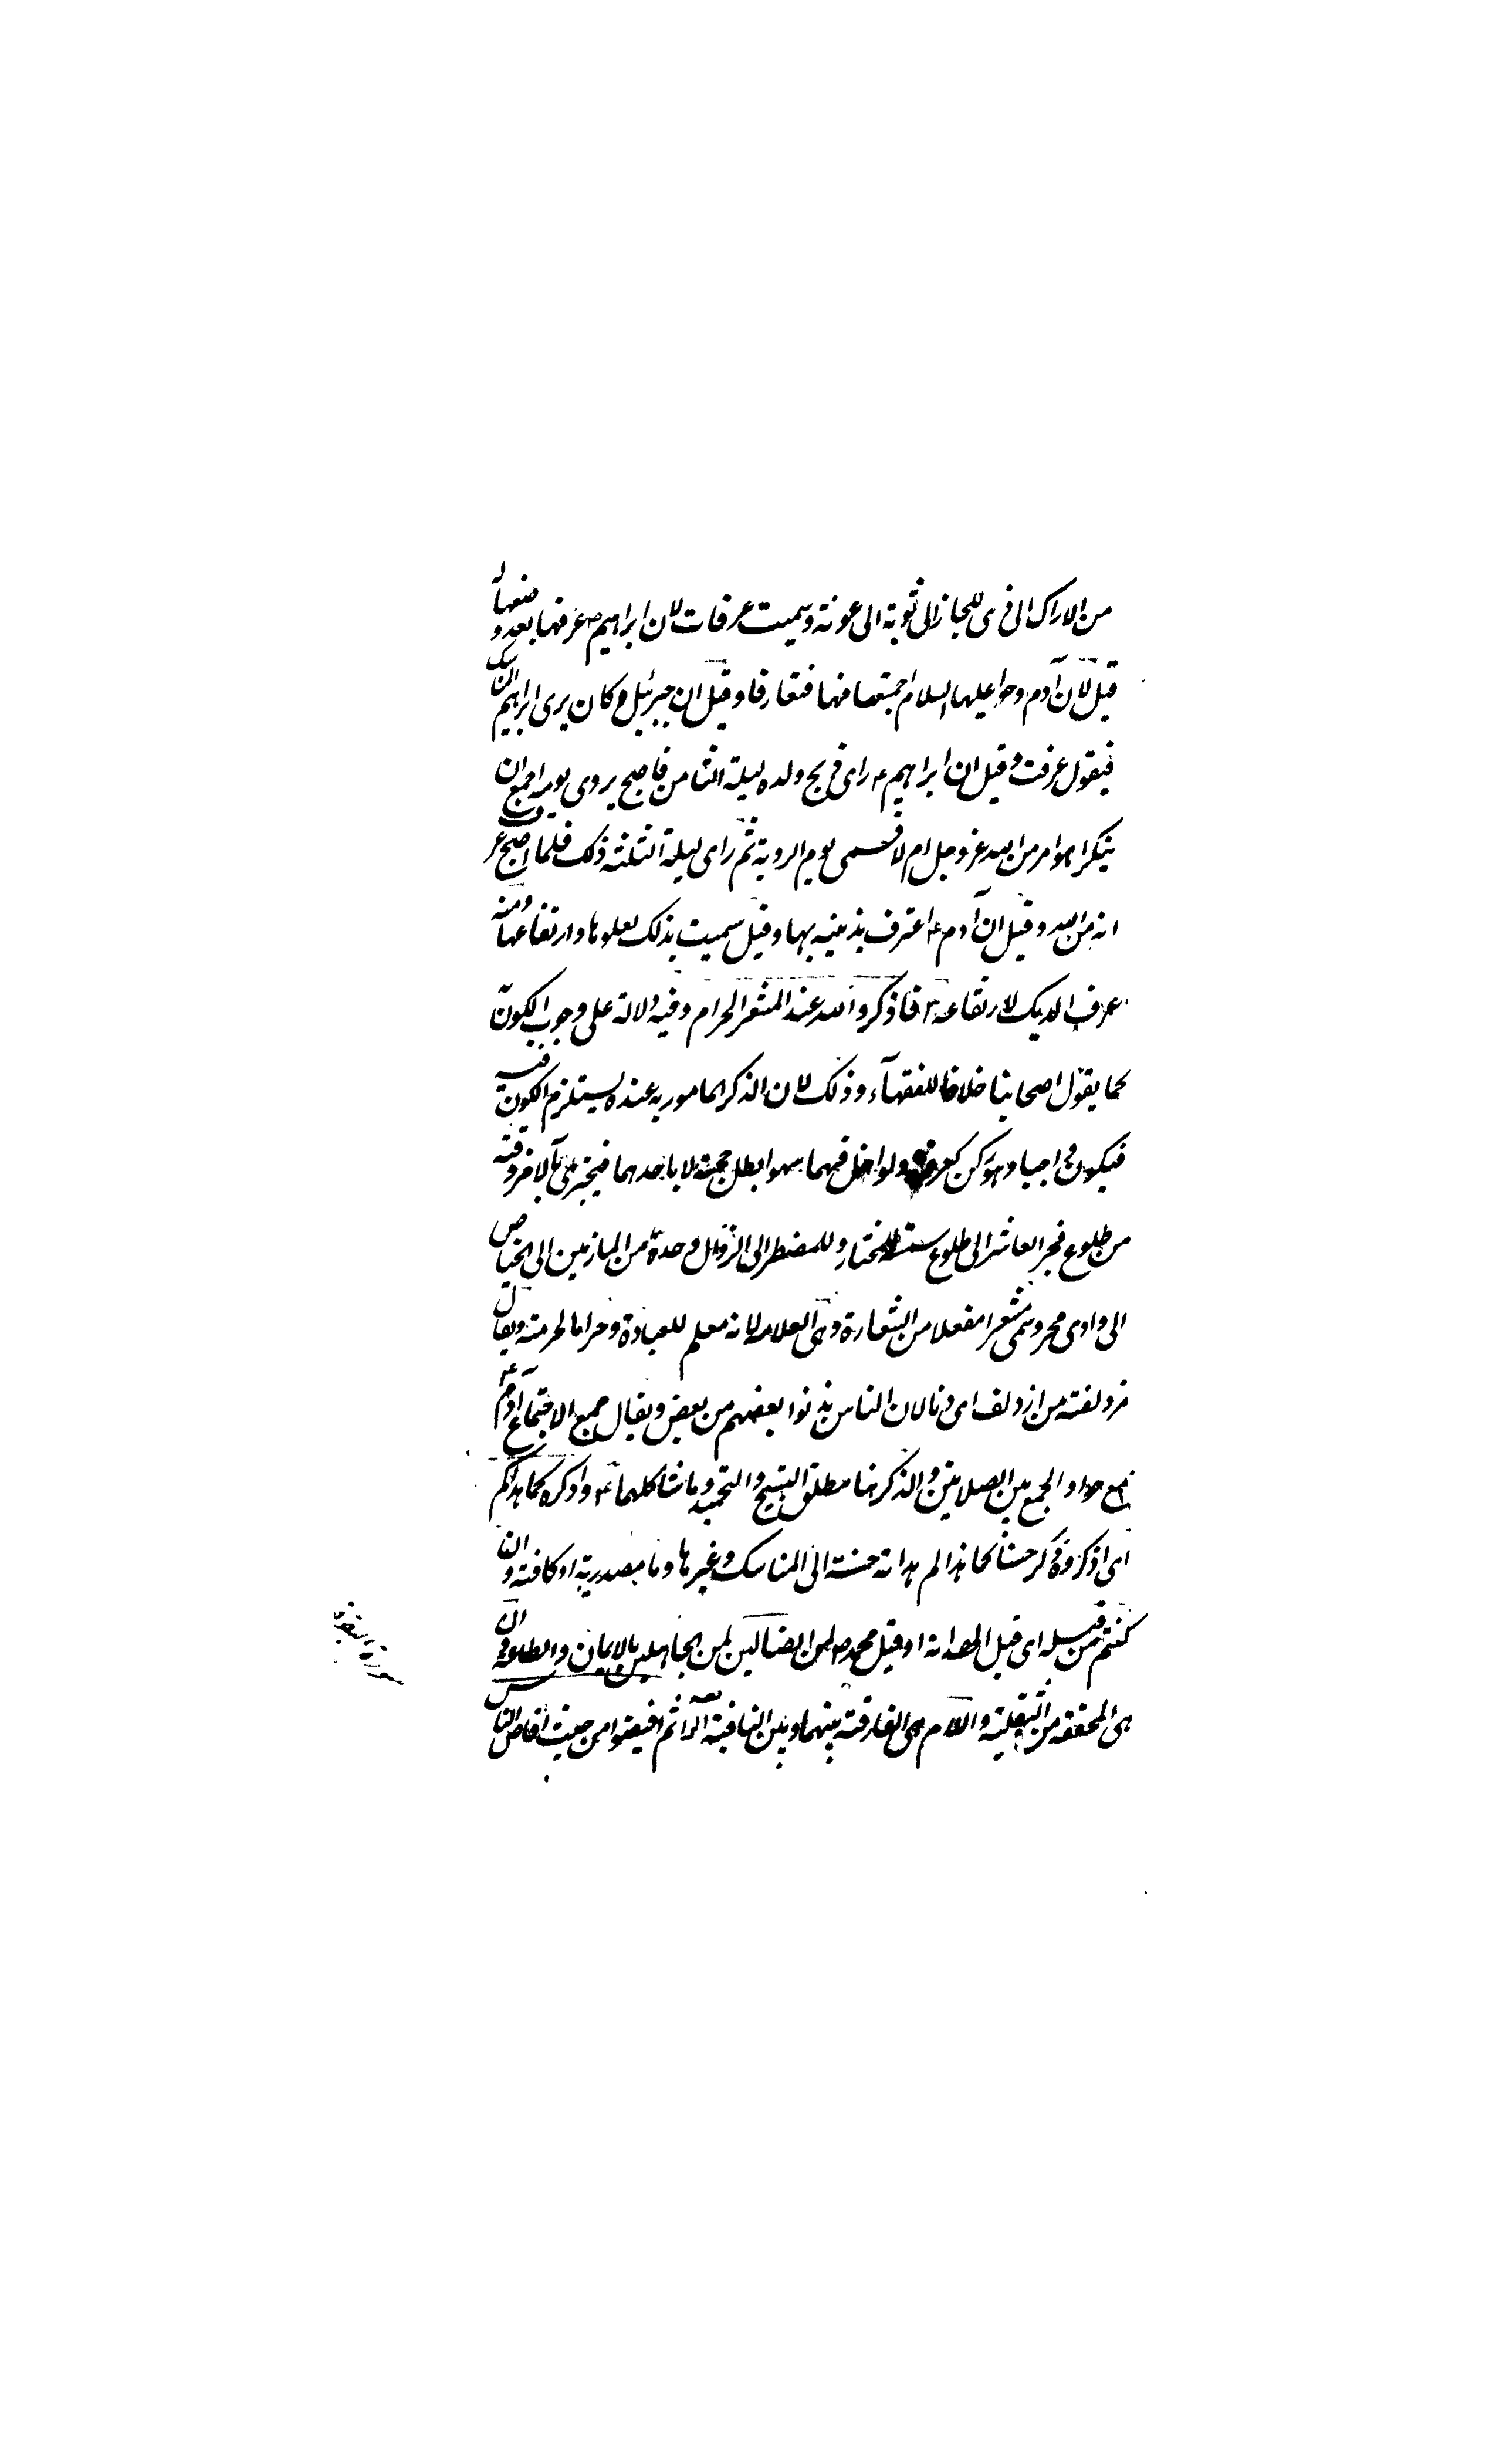 من الاراك الى ذى المجاز الى ثوية الى عرنة وسميت عرفات لان ابراهيم ع عرفها بعد وصفها له
قيل لان آدم وحوا عليهما السلام اجتمعا فيها فتعارفا وقيل ان جبرئيل ع كان يرى ابراهيم المناسك
فيقول عرفت وقيل ان ابراهيم ع راى ذبح ولده ليلة الثامن فاصبح يروى يومه اجمع ان
يفكر اهو امر من الله عز وجل ام لا فسمى يوم التروية ثم راى ليلة الثلثة ذلك فلما اصبح عرف
انه من الله وقيل ان آدم ع اعترف بذنبه بها وقيل سميت بذلك لعلوها وارتفاعها ومنه
عرف الديك لارتفاعه ٣ فاذكروا الله عند المشعر الحرام وفيه دلالة على وجوب الكون
كما يقول اصحابنا خلافا للفقهآء وذلك لان الذكر المامور به عنده يستلزم الكون فيه
فيكون واجبا وهو ركن كعرفة ولو اخل فيهما سهوا بطل حجه لا باحدهما فيجتزى بالاخر وقته
من طلوع فجر العاشر الى طلوع شمسه للمختار وللمضطر الى الزوال وحده من المازمين الى الحياض
الى وادى محسر وسمى مشعرا مفعلا من الشعارة وهى العلامه لانه معلم للعبادة وحراما لحرمته ويقال
مزدلفة من ازدلف اى دنا لان الناس يدنوا بعضهم من بعض ويقال جمع لاجتماع آدم ع
مع حوا و الجمع بين الصلاتين والذكر هنا مطلق التسبيح والتحميد وما شاكلهما ٤ واذكروه كما هداكم
اى اذكروه ذكرا حسنا كما هداكم هداية حسنة الى المناسك وغيرها وما مصدرية او كافة وان
كنتم من قبله اى قبل الهداية او قبل محمد ص لمن الضالين لمن الجاهلين بالايمان والطاعة وان
هى المخففة من الثقيلة واللام هى الفارقة بينهما وبين النافية ثم افيضوا من حيث افاض الناس